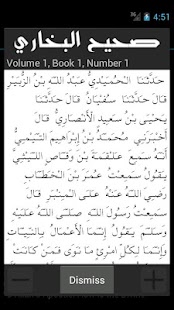 4:51
صحيح البخاري
Volume 1, Book 1, Number 1
حَدَّثَنَا الْحُمَيْدِيُّ عَبْدُ اللَّهِ بْنُ الزُّبَيْرِ
قَالَ حَدَّثَنَا سُفْيَانُ قَالَ حَدَّثَنَا
يَحْيَى بْنُ سَعِيدٍ الأَنْصَارِيُّ قَالَ
أَخْبَرَنِي مُحَمَّدُ بْنُ إِبْرَاهِيمَ التَّيْمِيُّ
أَنَّهُ سَمِعَ عَلْقَمَةَ بْنَ وَقَّاصٍ اللَّيْثِيَّ
يَقُولُ سَمِعْتُ عُمَرَ بْنَ الْخَطَّابِ
رَضِيَ اللَّهُ عَنْهُ عَلَى الْمِنْبَرِ قَالَ
سَمِعْتُ رَسُولَ اللَّهِ صَلَّى اللَّهُ عَلَيْهِ
وَسَلَّمَ يَقُولُ إِنَّمَا الأَعْمَالُ بِالنِّيَّاتِ
وَإِنَّمَا لِكُلِّ امْرِئٍ مَا نَوَى فَمَنْ كَانَتْ
Dismiss